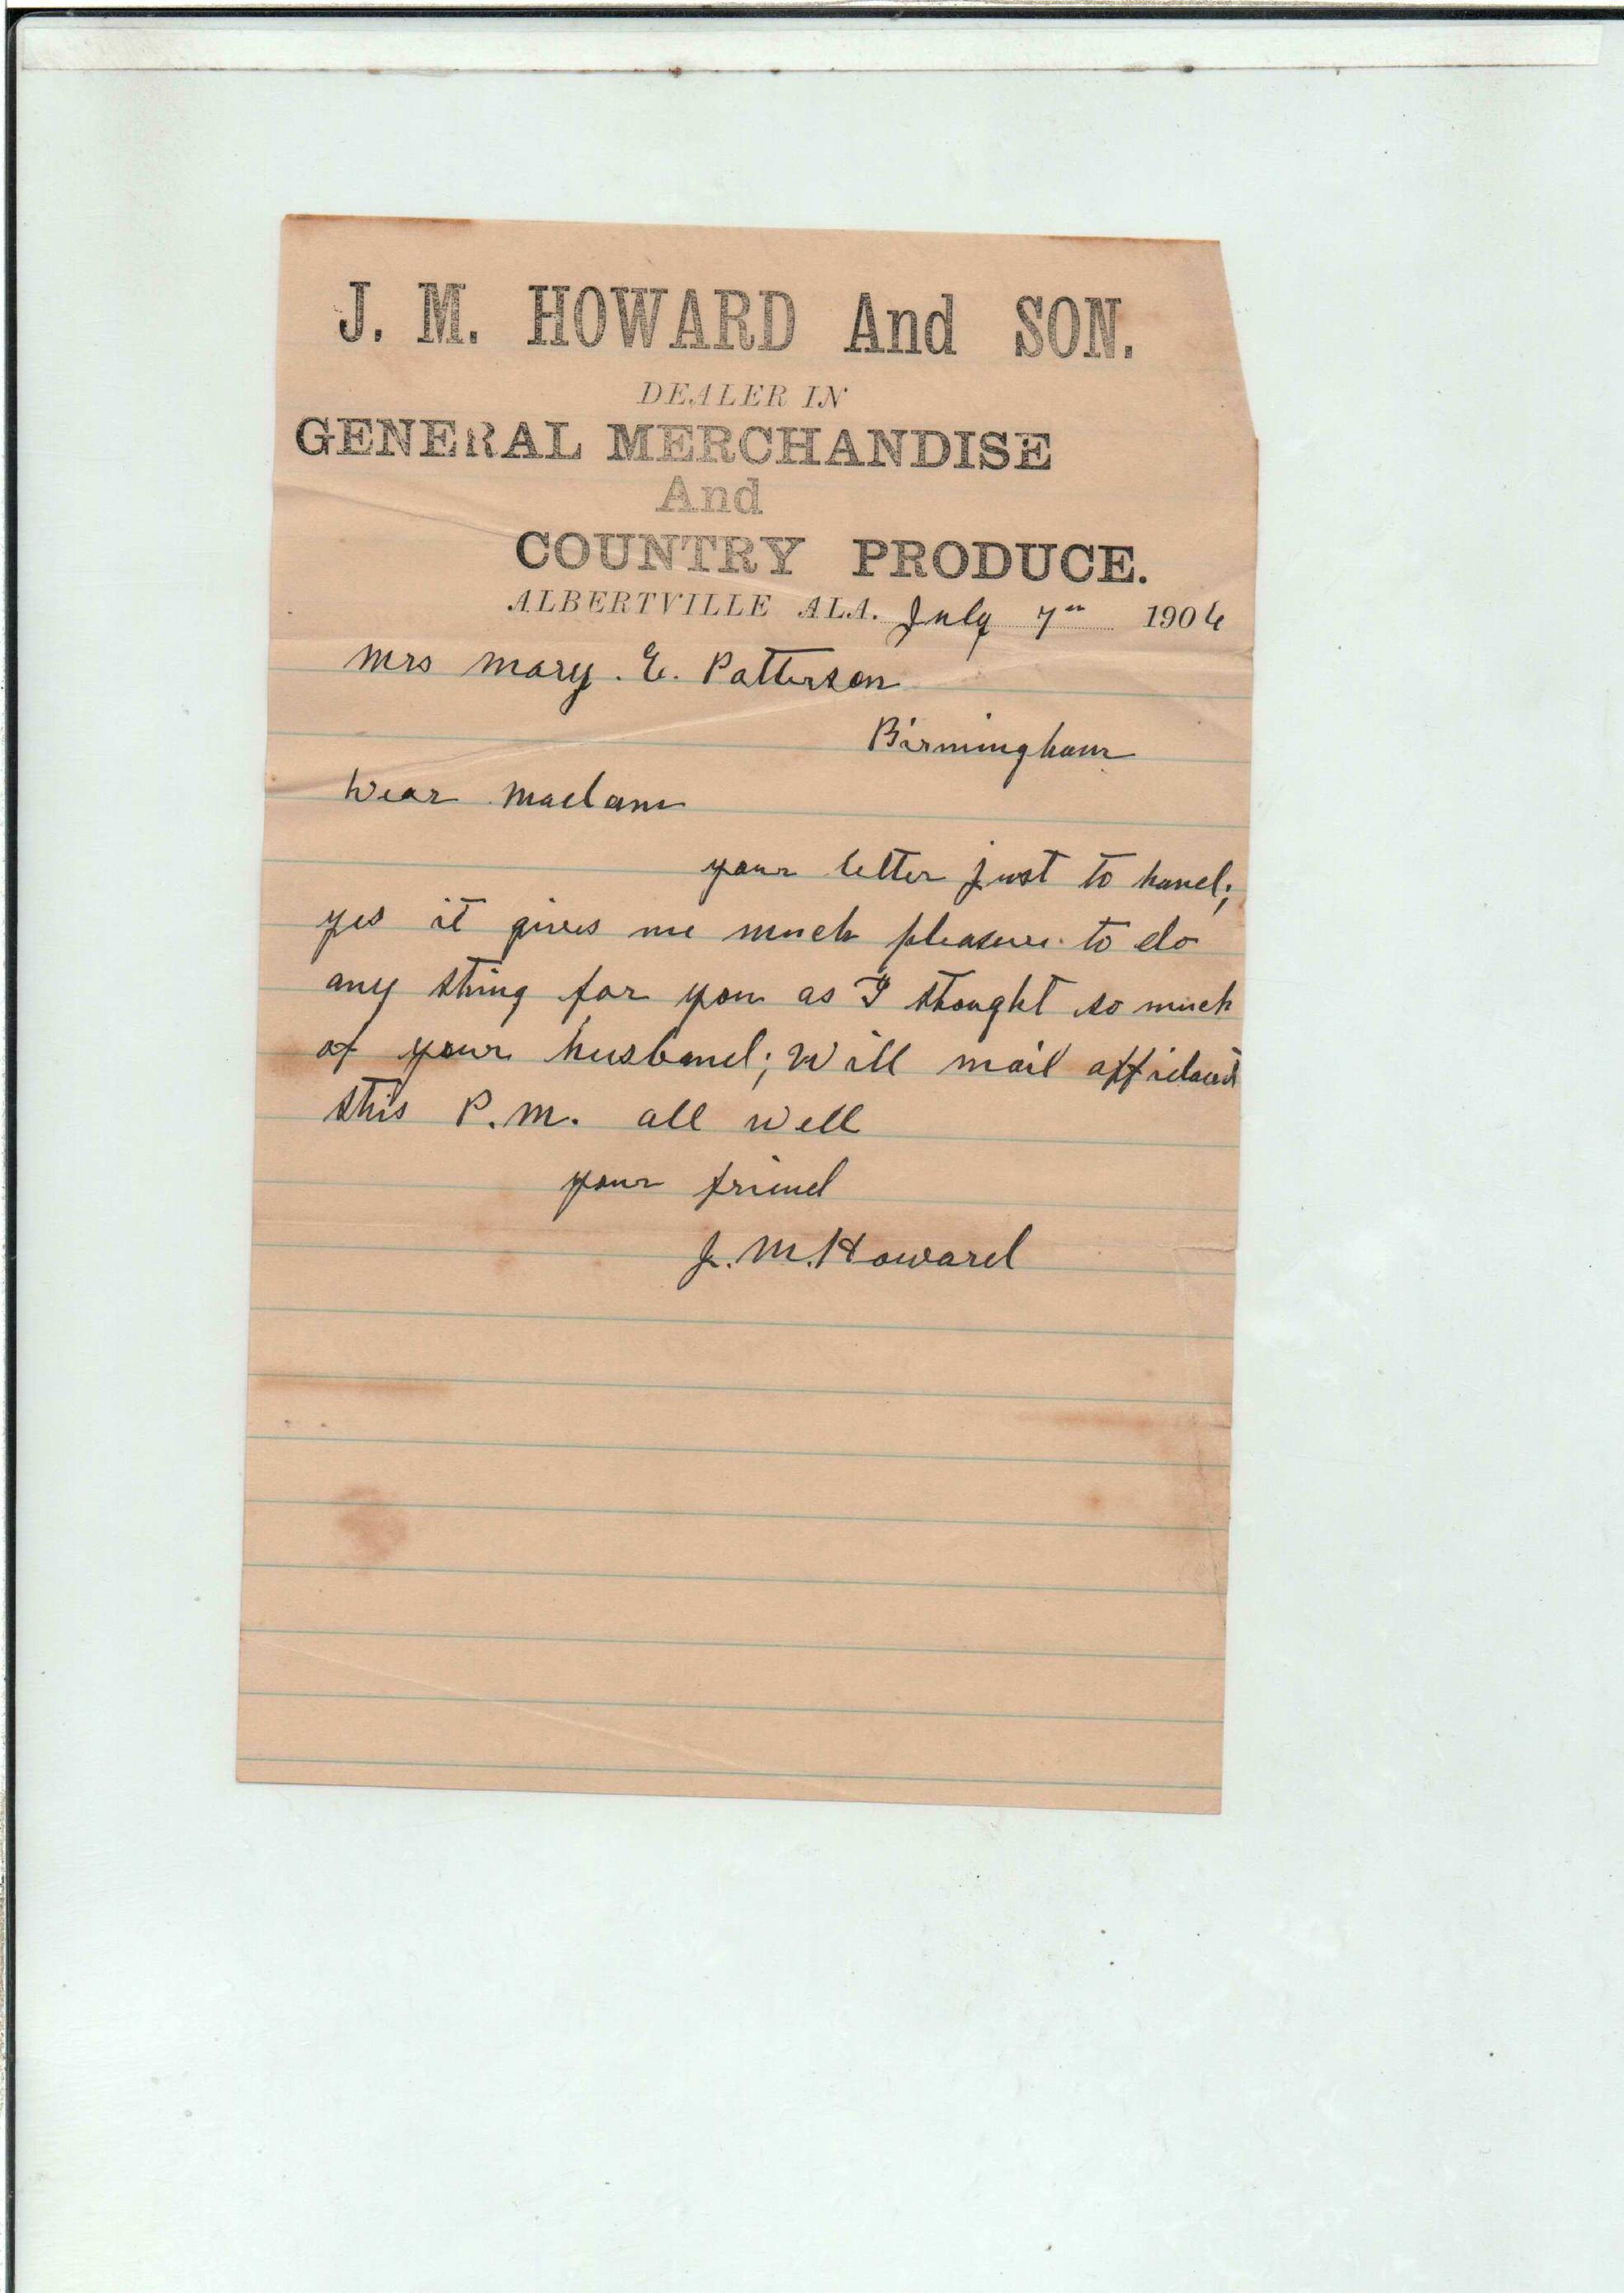 J. M. HOWARD And SON.
DEALER IN
GENERAL MERCHANDISE
And
COUNTRY PRODUCE.
ALBERTVILLE ALA. July 7th 1906
Mrs Mary. E. Patterson
Birmingham
Dear Madam
your letter just to hand;
yes it gives me much pleasure to do
any thing for you as I thought so much
of your husband; Will mail affidavit
this P.M. all well
your friend
J. M. Howard